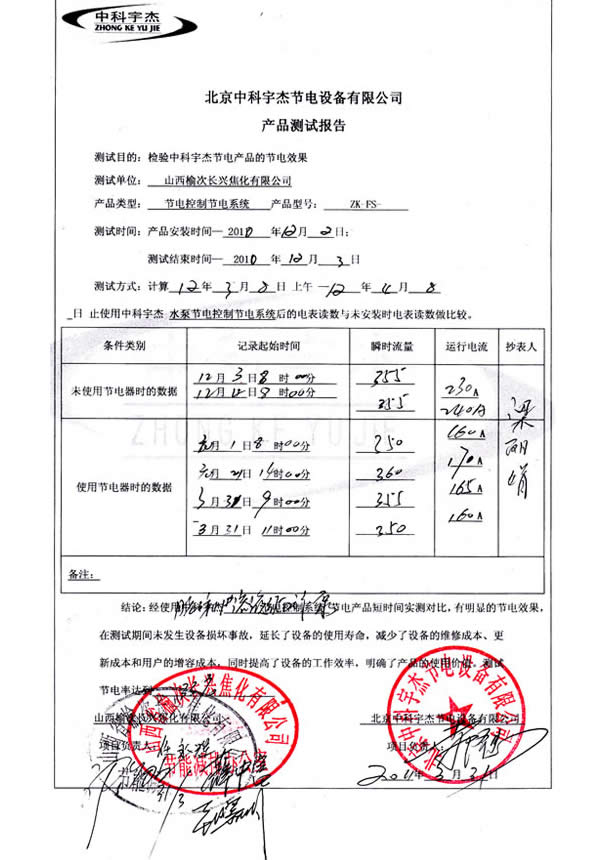 中科宇杰
ZHONG KE YU JIE
北京中科宇杰节电设备有限公司
产品测试报告
测试目的：检验中科宇杰节电产品的节电效果
测试单位：山西榆次长兴焦化有限公司
产品类型：节电控制节电系统 产品型号：ZK-FS-
测试时间：产品安装时间—2010 年12月2日；
测试结束时间— 2010 年12月3日
测试方式：计算12年3月8日 上午 —12年4月8
日 止使用中科宇杰 水泵节电控制节电系统后的电表读数与未安装时电表读数做比较。
条件类别 记录起始时间 瞬时流量 运行电流 抄表人
未使用节电器时的数据 12月3日8时00分 355 230A
12月4日8时00分 355 240A
使用节电器时的数据 元月1日8时00分 350 160A
元月21日14时00分 360 170A
3月31日9时00分 355 165A
3月31日11时00分 350 160A
梁
ZHONG KE YU JIE
备注：
结论：经使用 控制系统 节电产品短时间实测对比，有明显的节电效果，
在测试期间未发生设备损坏事故，延长了设备的使用寿命，减少了设备的维修成本、更
新成本和用户的增容成本，同时提高了设备的工作效率，明确了产品的使用价值。测试
节电率达到
山西榆次长兴焦化有限公司 北京中科宇杰节电设备有限公司
项目负责人 项目负责人
2011年3月31日
山西榆次长兴焦化有限公司
节能减排办公室
北京中科宇杰节电设备有限公司